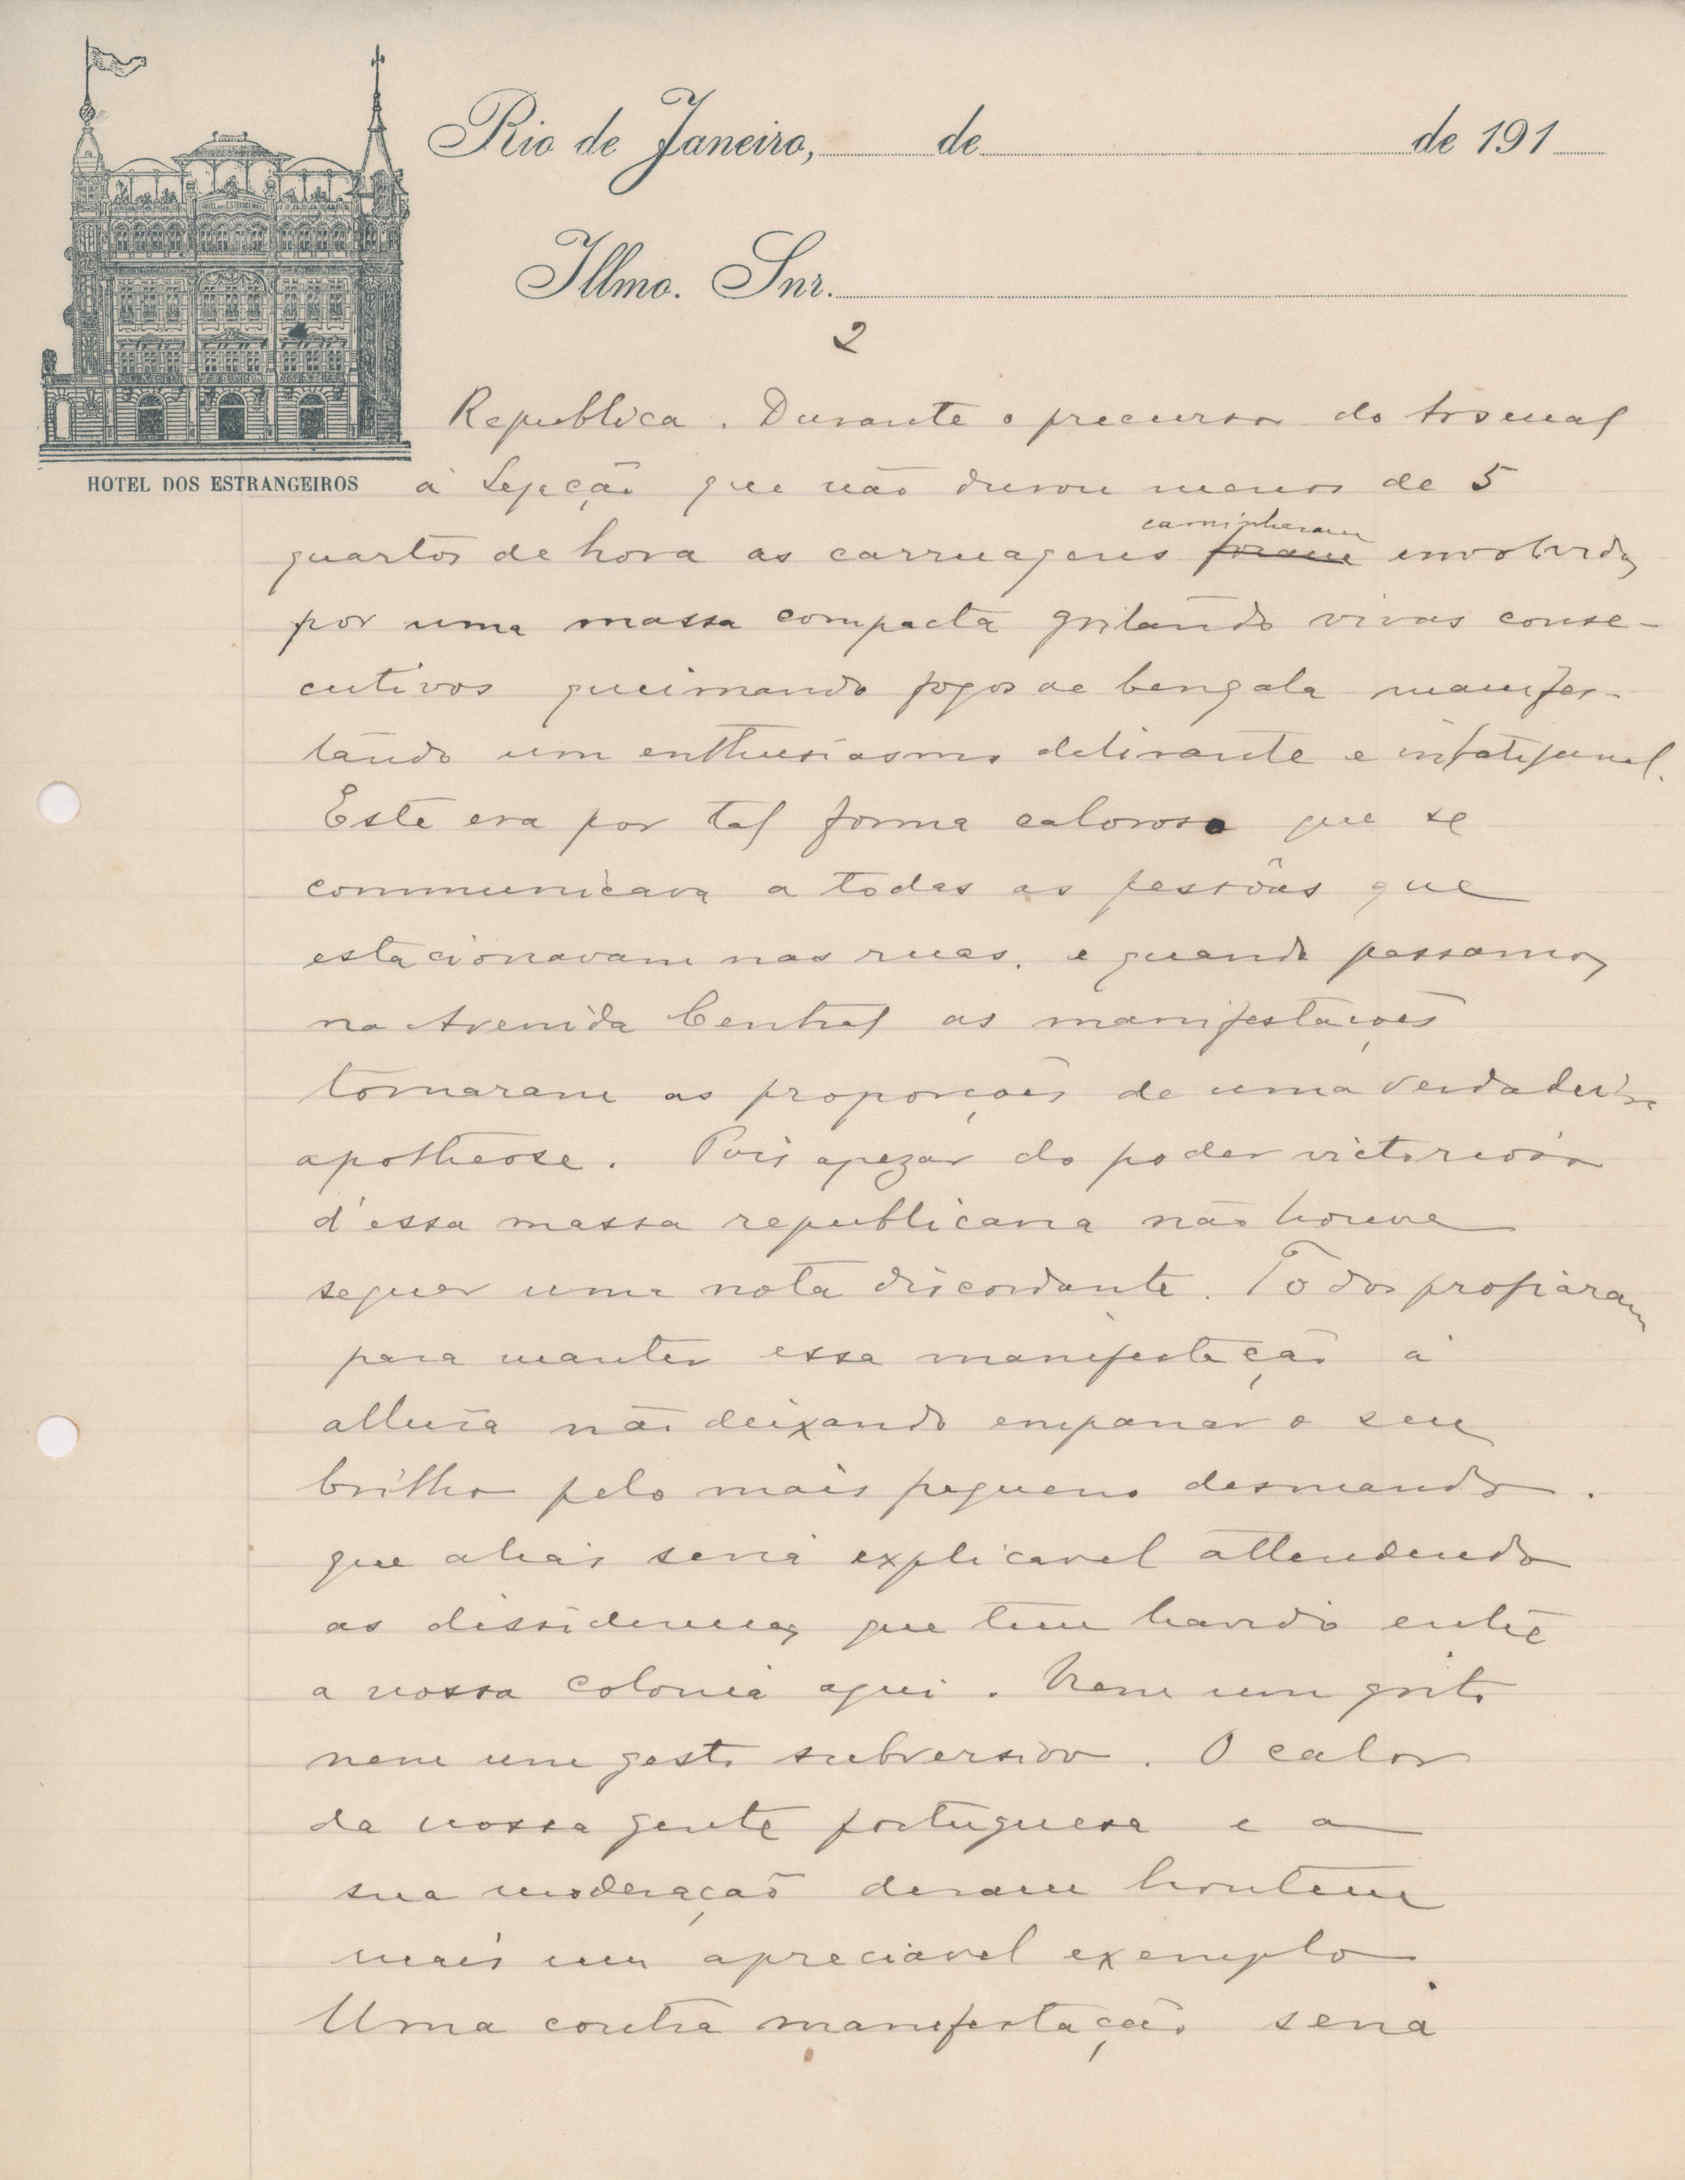 Rio de Janeiro, de de 191
Illmo. Snr.
HOTEL DOS ESTRANGEIROS
2
Republica. Durante o precurso do Arsenal
á Legação que não durou menos de 5
caminharam
quartos de hora as carruagens foram envolvidas
por uma massa compacta gritando vivas conse-
cutivos queimando fogos de bengala manifes-
tando um enthusiasmo delirante e infatigavel.
Este era por tal forma caloroso que se
communicava a todas as pessôas que
estacionavam nas ruas. e quando passamos
na Avenida Central as manifestações
tomaram as proporções de uma verdadeira
apotheose. Pois apezar do poder victorioso
d'essa massa republicana não houve
sequer uma nota discordante. Todos profiaram
para manter essa manifestação á
altura não deixando empanar o seu
brilho pelo mais pequeno desmando.
que aliás seria explicavel attendendo
as dissidencias que tem havido entre
a nossa colonia aqui. Nem um grito
nem um gesto subversivo. O calor
da nossa gente portuguesa e a
sua moderação deram hontem
mais um apreciavel exemplo
Uma contra manifestação seria